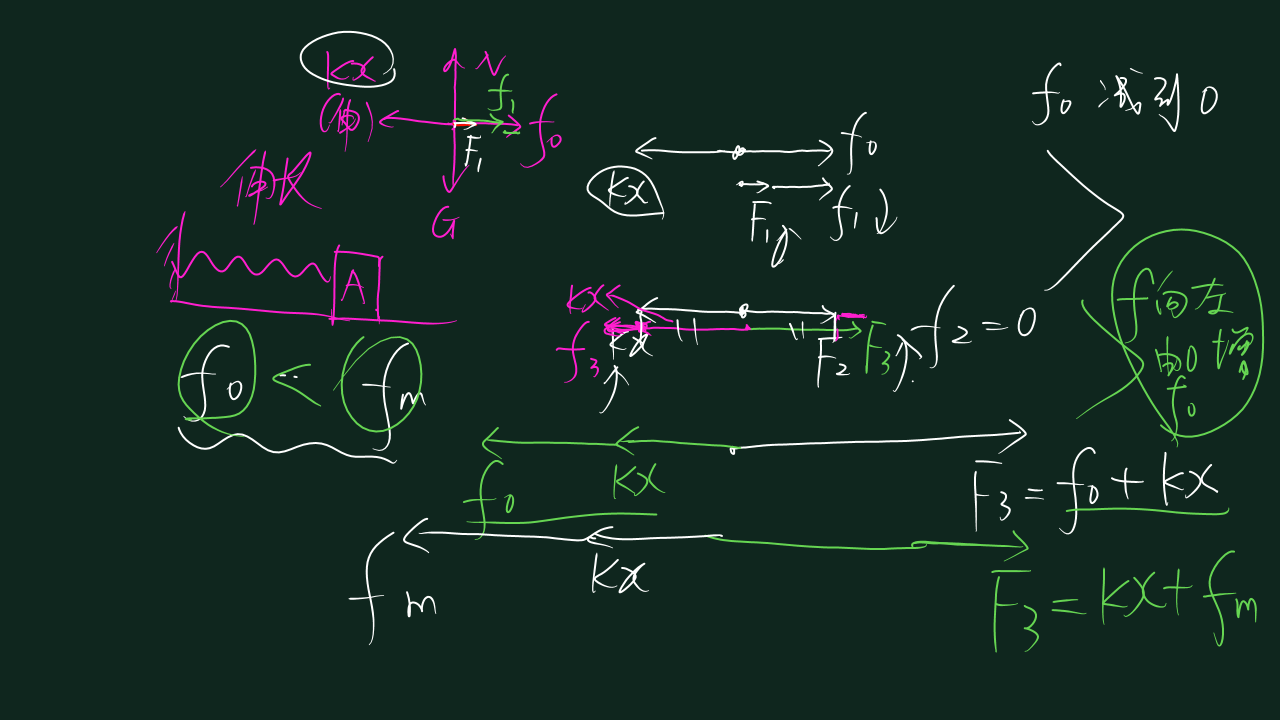 kx
(伸)
N
f₁
f₀
F₁
G
伸长
A
f₀ < fₘ
f₀
kx
F₁
f₁
kx
f₃
kx
F₂
F₃
f₂=0
f₀ 减到 0
f向左
由0增
f₀
f₀
kx
F₃=f₀+kx
fm
kx
F₃=kx+fm